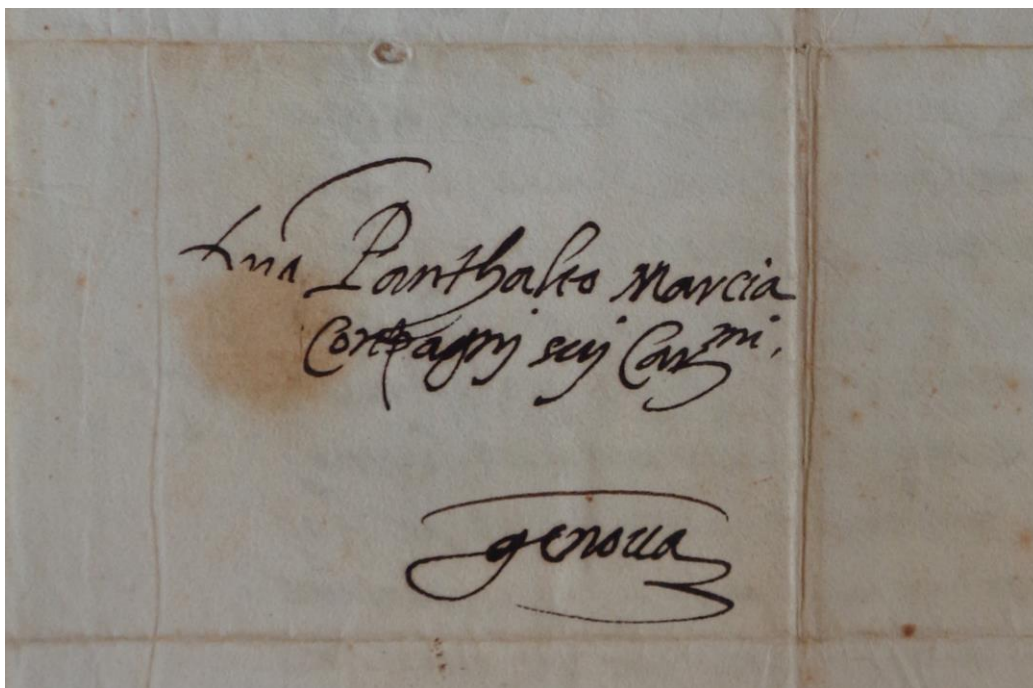 Panthaleo Marcia
Conpagnj suj Carmi.
genoua